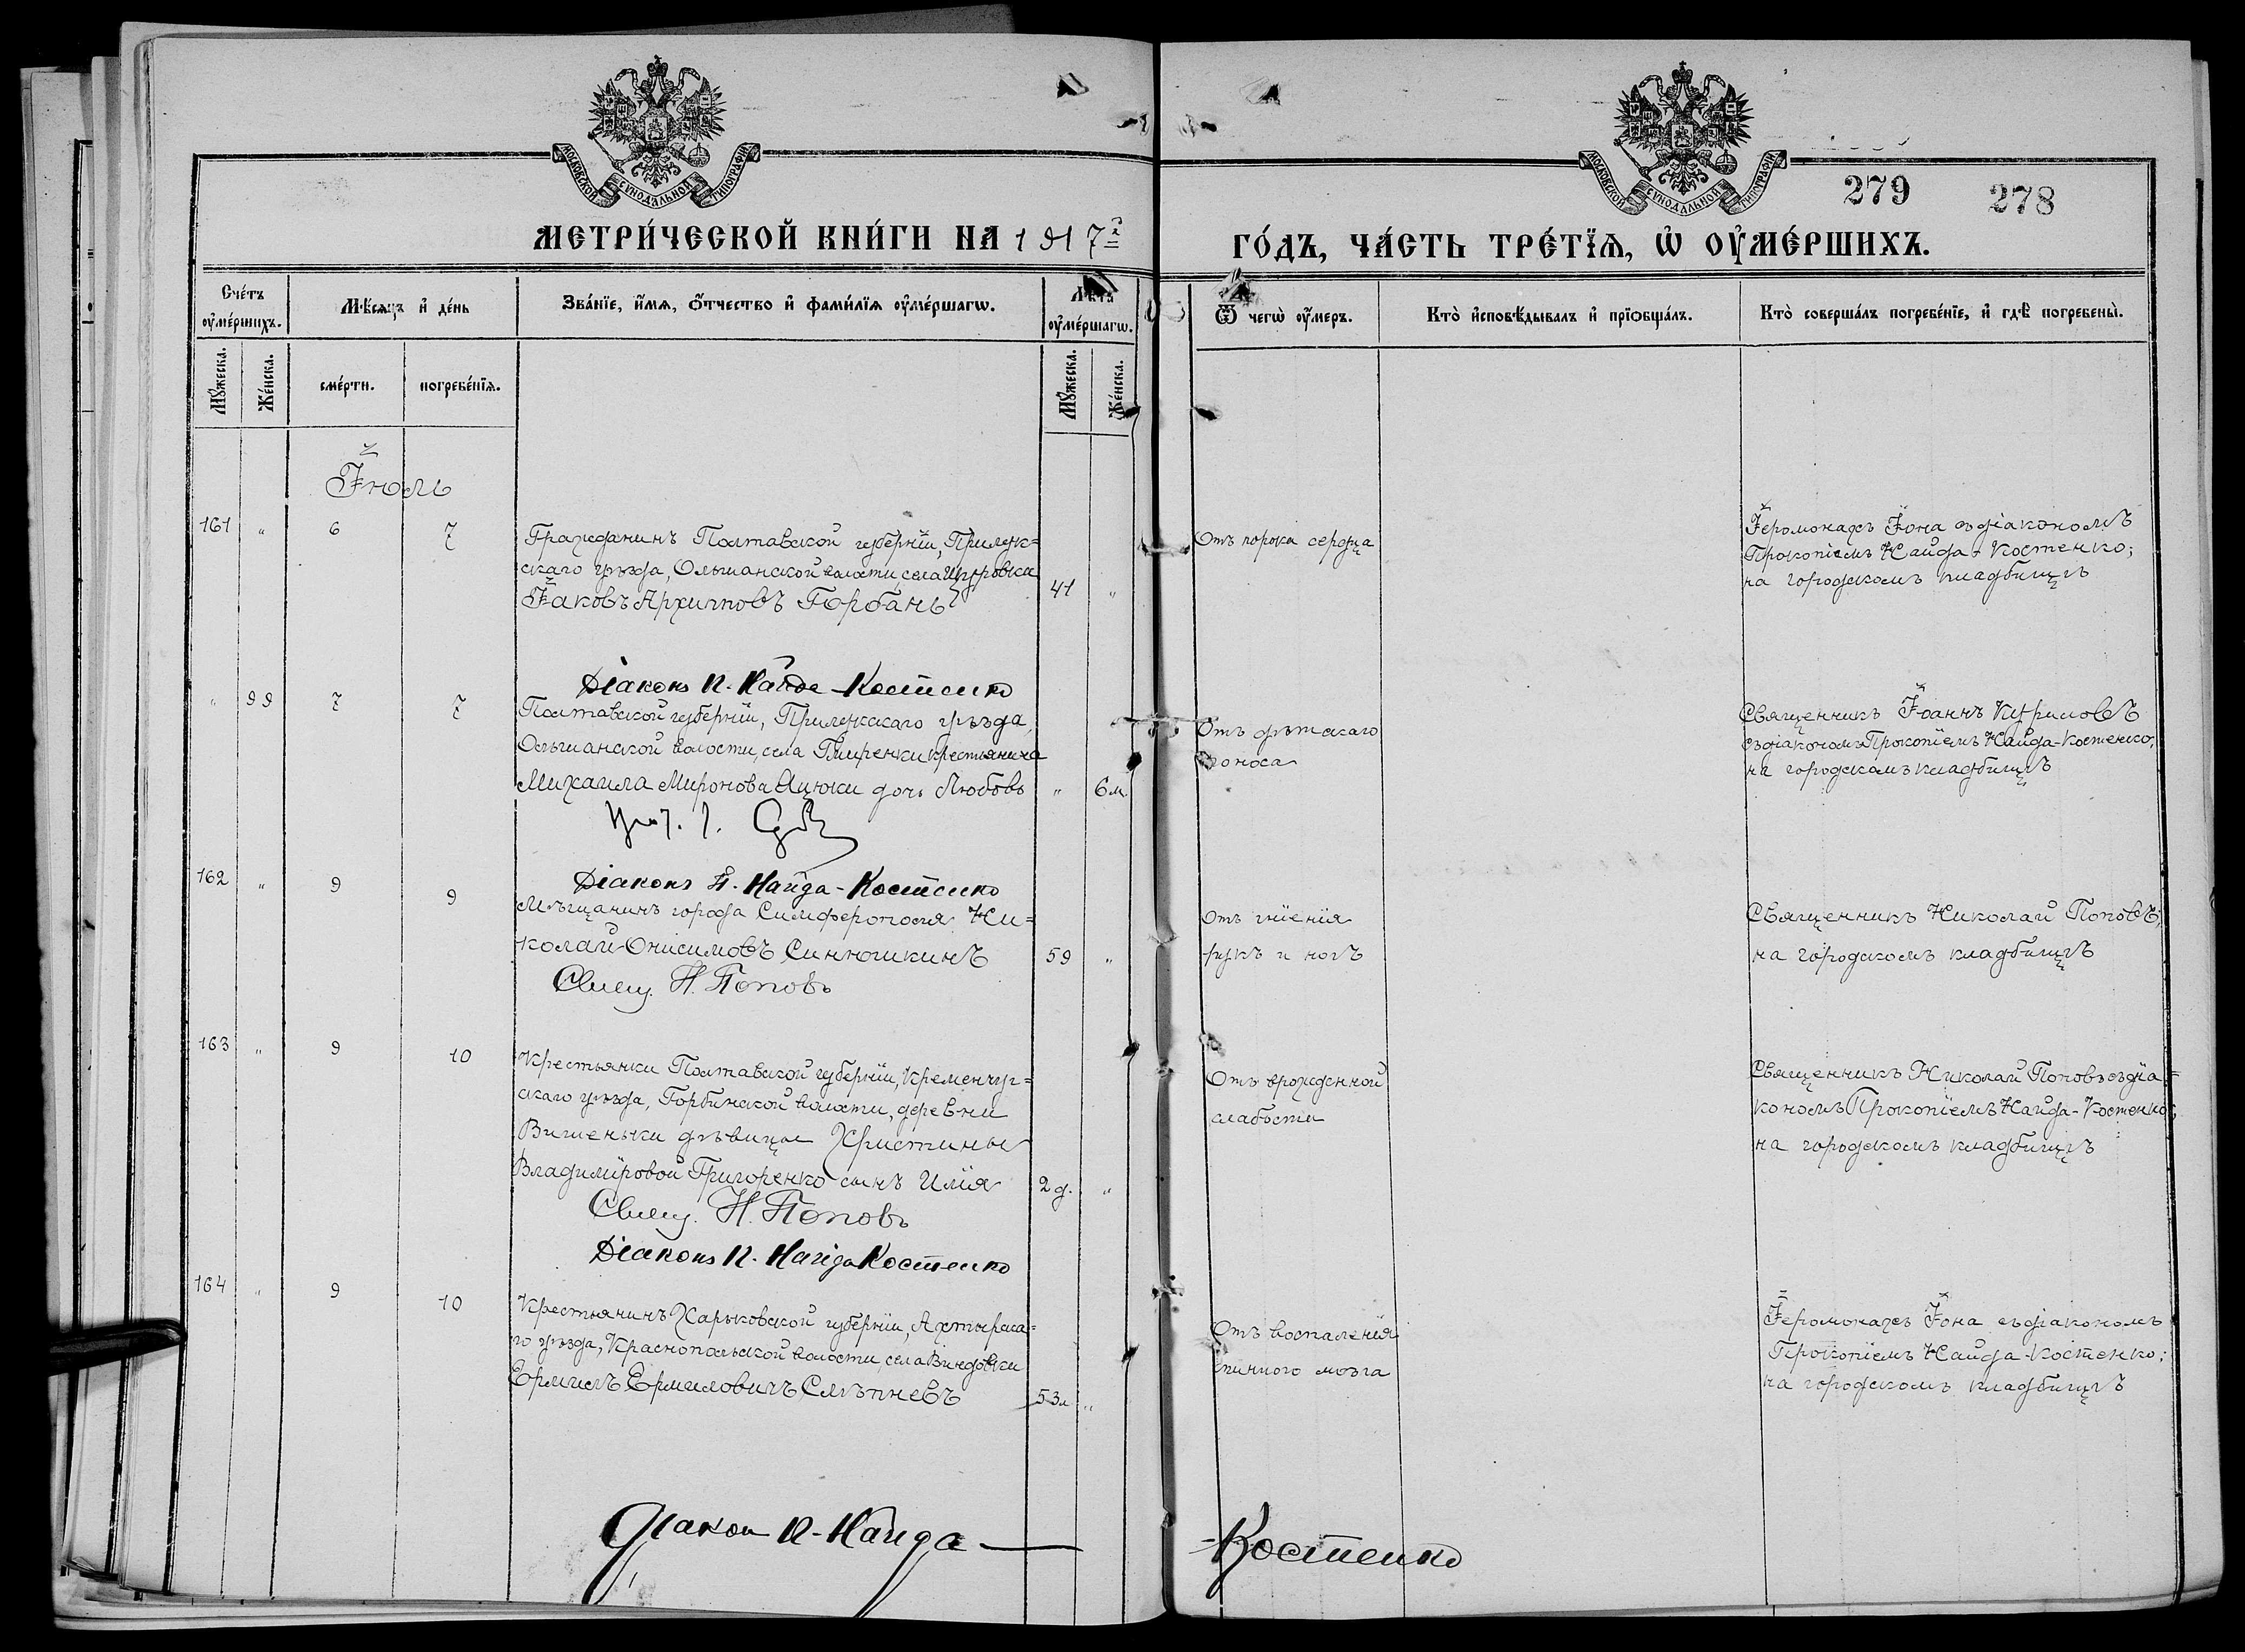 МОСКОВСКОЙ СѴНОДАЛЬНОЙ ТИПОГРАФІИ
МОСКОВСКОЙ СѴНОДАЛЬНОЙ ТИПОГРАФІИ
279 278
МЕТРИ́ЧЕСКОЙ КНИ́ГИ НА 1917й
ГО́ДЪ, ЧА́СТЬ ТРЕ́ТЇѦ, Ѡ҆ ОУ҆МЕ́РШИХЪ.
Сче́тъ оу҆ме́ршихъ.
Мѣ́сяцъ и҆ де́нь
Зва́нїе, и҆́мѧ, ѻ҆́тчество и҆ фами́лїѧ оу҆ме́ршагѡ.
Лѣ́та оу҆ме́ршагѡ.
Ѿ чегѡ̀ оу҆́меръ.
Кто̀ и҆сповѣ́дывалъ и҆ прїѻбща́лъ.
Кто̀ соверша́лъ погребе́нїе, и҆ гдѣ̀ погребены̀.
Мꙋ́жеска.
Же́нска.
сме́рти.
погребе́нїѧ.
Мꙋ́жеска.
Же́нска.
Іюль
161 " 6 7
Гражданинъ Полтавской губерніи, Прилук=
скаго уѣзда, Ольшанской волости, села
Іаковъ Архиповъ Горбань
41 "
Отъ порока сердца
Іеромонахъ Іона съ діакономъ
Прокопіемъ Найда-Костенко;
на городскомъ кладбищѣ
Діаконъ П. Найда-Костенко
" 99 7 7
Полтавской губерніи, Прилукскаго уѣзда,
Ольшанской волости, села Гмиренки крестьянина
Михаила Миронова Яцюки дочь Любовь
" 6 м.
Отъ дѣтскаго
поноса
Священникъ Іоаннъ
съ діакономъ Прокопіемъ Найда-Костенко;
на городскомъ кладбищѣ
Діаконъ П. Найда-Костенко
162 " 9 9
Мѣщанинъ города Симферополя Ни=
колай Онисимовъ Синюшкинъ
59 "
Отъ гніенія
рукъ и ногъ
Священникъ Николай Поповъ;
на городскомъ кладбищѣ
Свящ. Н. Поповъ
163 " 9 10
Крестьянки Полтавской губерніи, Кременчуг-
скаго уѣзда, Горбинской волости, деревни
Вишеньки дѣвицы Христины
Владиміровой Григоренко сынъ Илія
2 д. "
Отъ врожденной
слабости
Священникъ Николай Поповъ съ діа=
кономъ Прокопіемъ Найда-Костенко;
на городскомъ кладбищѣ
Свящ. Н. Поповъ
Діаконъ П. Найда Костенко
164 " 9 10
Крестьянинъ Харьковской губерніи, Ахтырска=
го уѣзда, Краснопольской волости, села
Ермилъ Ермиловичъ Слѣпневъ
53 л "
Отъ воспаленія
спинного мозга
Іеромонахъ Іона съ діакономъ
Прокопіемъ Найда-Костенко;
на городскомъ кладбищѣ
Діакон П-Найда-
-Костенко